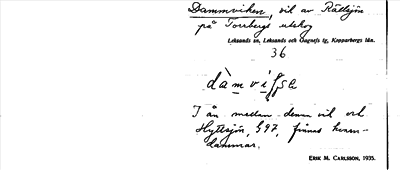 Dammviken, vik av Rältsjön
på Torrbergs utskog
Leksands sn, Leksands och Gagnefs tg, Kopparbergs län.
36
I ån mellan denna vik och
Hyttsjön, § 97, finnas kvarn-
dammar.
ERIK M. CARLSSON, 1935.